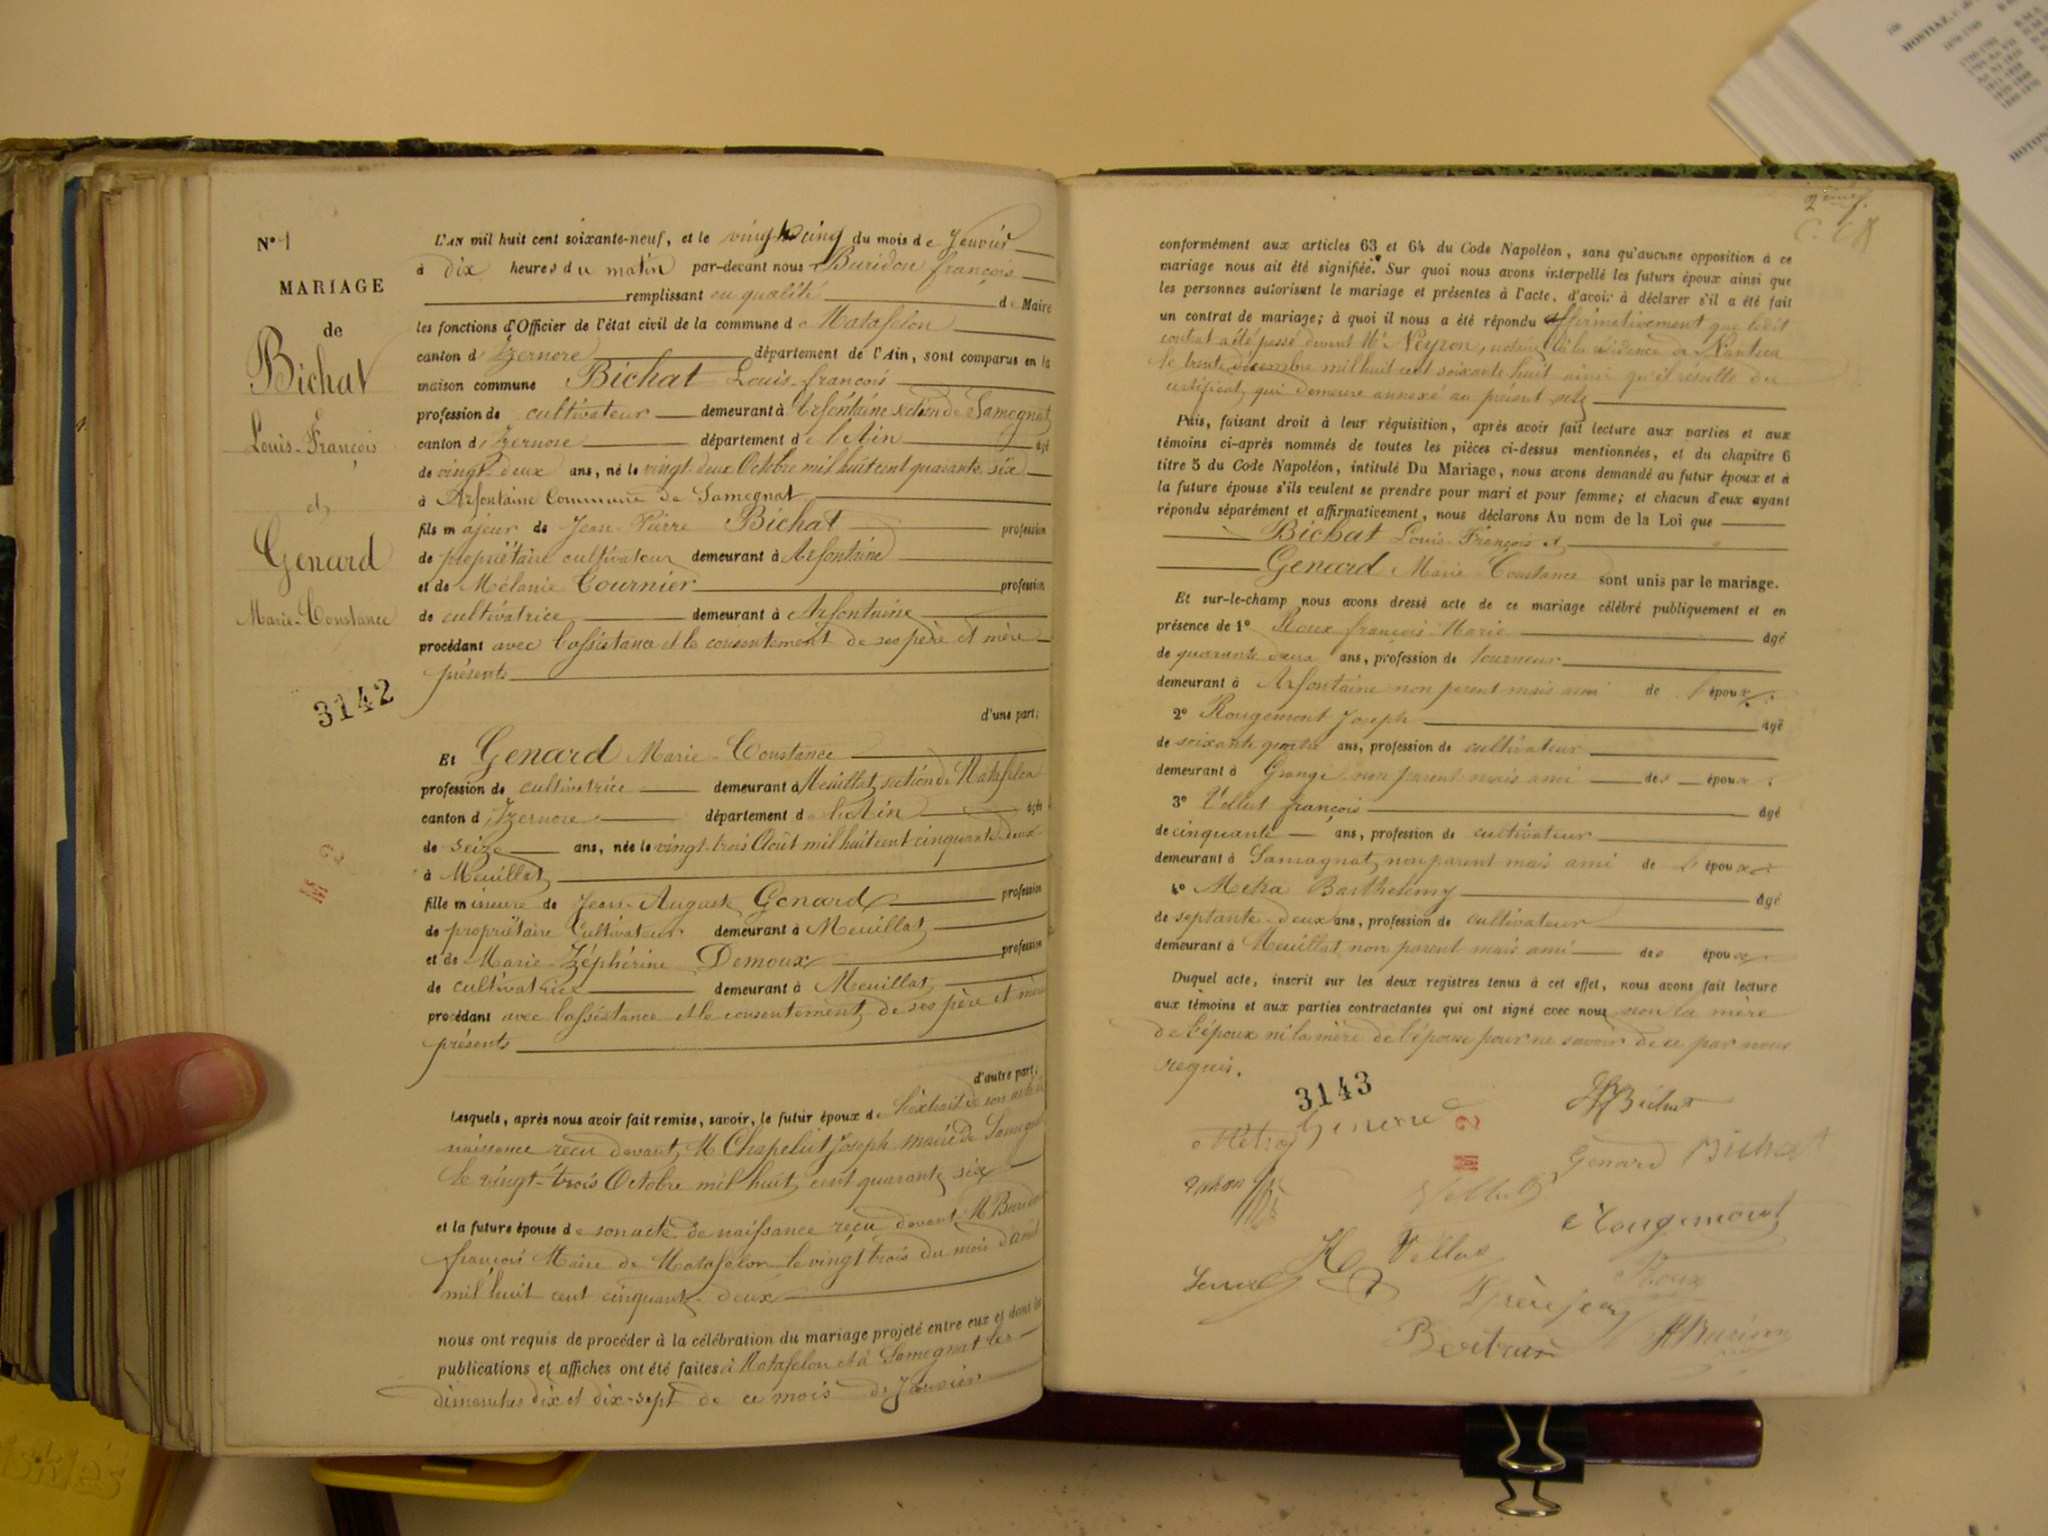 N° 1
MARIAGE
de
Bichat
Louis-François
et
Genard
Marie-Constance
3142
L'AN mil huit cent soixante-neuf, et le vingt cinq du mois de Janvier
à dix heures du matin par-devant nous Buridon françois
remplissant en qualité de Maire
les fonctions d'Officier de l'état civil de la commune de Matafelon
canton d'Izernore département de l'Ain, sont comparus en la
maison commune Bichat Louis-françois
profession de cultivateur demeurant à Arfontaine section de Samognat
canton d'Izernore département de l'Ain âgé
de vingt-deux ans, né le vingt-deux Octobre mil huit cent quarante-six
à Arfontaine Commune de Samognat
fils majeur de Jean-Pierre Bichat profession
de propriétaire cultivateur demeurant à Arfontaine
et de Mélanie Tournier profession
de cultivatrice demeurant à Arfontaine
procédant avec l'assistance et le consentement de ses père et mère
présents
d'une part;
Et Genard Marie-Constance
profession de cultivatrice demeurant à Meuillat, section de Matafelon
canton d'Izernore département de l'Ain âgée
de seize ans, née le vingt-trois Août mil huit cent cinquante-deux
à Meuillat
fille mineure de Jean-Auguste Genard profession
de propriétaire Cultivateur demeurant à Meuillat
et de Marie-Zéphérine Demoux profession
de cultivatrice demeurant à Meuillat
procédant avec l'assistance et le consentement de ses père et mère
présents
d'autre part;
Lesquels, après nous avoir fait remise, savoir, le futur époux de l'extrait de son acte de
naissance reçu devant M Chapelut Joseph maire de Samognat
le vingt-trois Octobre mil huit cent quarante six
et la future épouse de son acte de naissance reçu devant M Buridon
françois Maire de Matafelon le vingt trois du mois d'août
mil huit cent cinquante-deux
nous ont requis de procéder à la célébration du mariage projeté entre eux et dont les
publications et affiches ont été faites à Matafelon et à Samognat les
dimanches dix et dix-sept de ce mois de Janvier
conformément aux articles 63 et 64 du Code Napoléon, sans qu'aucune opposition à ce
mariage nous ait été signifiée. Sur quoi nous avons interpellé les futurs époux ainsi que
les personnes autorisant le mariage et présentes à l'acte, d'avoir à déclarer s'il a été fait
un contrat de mariage; à quoi il nous a été répondu affirmativement que ledit
contrat a été passé devant Me Neyron, notaire à la résidence de Nantua
le trente décembre mil huit cent soixante huit ainsi qu'il résulte du
certificat, qui demeure annexé au présent acte
Puis, faisant droit à leur réquisition, après avoir fait lecture aux parties et aux
témoins ci-après nommés de toutes les pièces ci-dessus mentionnées, et du chapitre 6
titre 5 du Code Napoléon, intitulé Du Mariage, nous avons demandé au futur époux et à
la future épouse s'ils veulent se prendre pour mari et pour femme; et chacun d'eux ayant
répondu séparément et affirmativement, nous déclarons Au nom de la Loi que
Bichat Louis-François et
Genard Marie-Constance sont unis par le mariage.
Et sur-le-champ nous avons dressé acte de ce mariage célébré publiquement et en
présence de 1° Roux françois-Marie âgé
de quarante deux ans, profession de tourneur
demeurant à Arfontaine non parent mais ami de l'époux;
2° Rougemont Joseph âgé
de soixante ans, profession de cultivateur
demeurant à Grange non parent mais ami des époux;
3° Vellut françois âgé
de cinquante ans, profession de cultivateur
demeurant à Samognat, non parent mais ami de l'époux;
4° Metra Barthelemy âgé
de septante-deux ans, profession de cultivateur
demeurant à Meuillat non parent mais ami des époux.
Duquel acte, inscrit sur les deux registres tenus à cet effet, nous avons fait lecture
aux témoins et aux parties contractantes qui ont signé avec nous non la mère
de l'époux ni la mère de l'épouse pour ne savoir de ce par nous
requis.
3143
Bichat
Genard Bichat
Rougemont
Roux